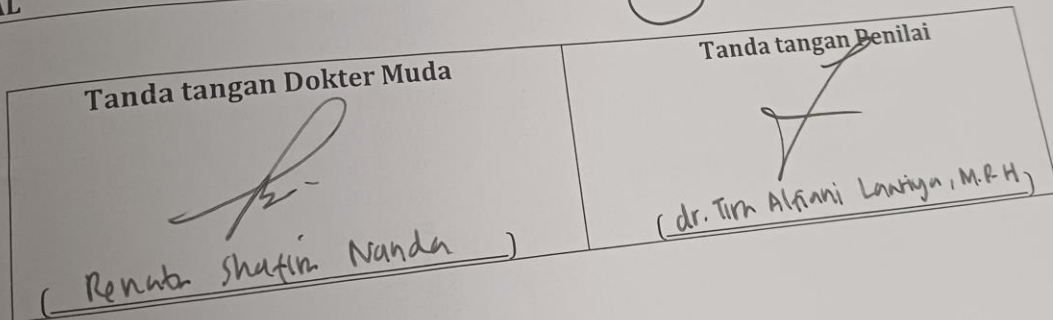 Tanda tangan Dokter Muda
Tanda tangan Penilai
(Renata Shafira Nanda)
(dr. Tirta Alfiani Laariya, M.R.H)